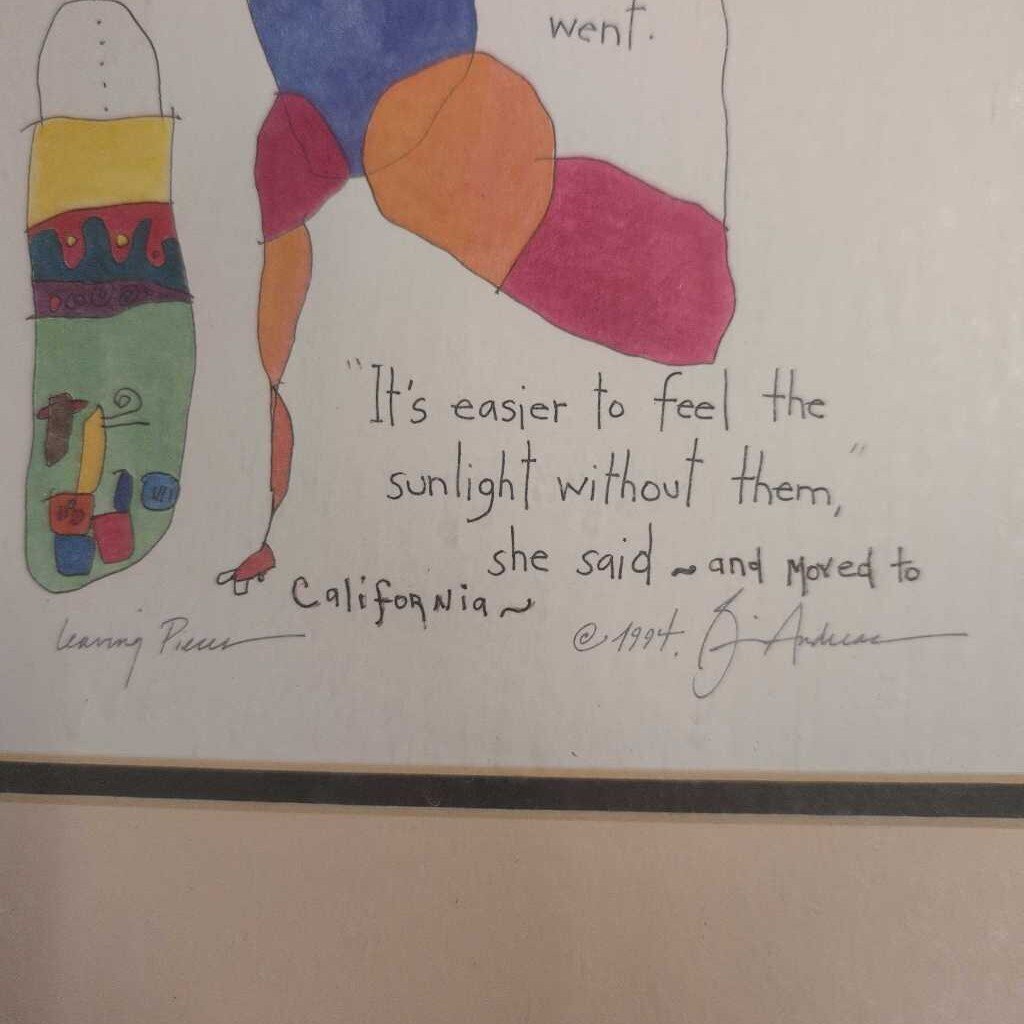 went.
"It's easier to feel the
sunlight without them,"
she said ~ and moved to
California ~
Leaving Pieces
© 1994. Brian Andreas